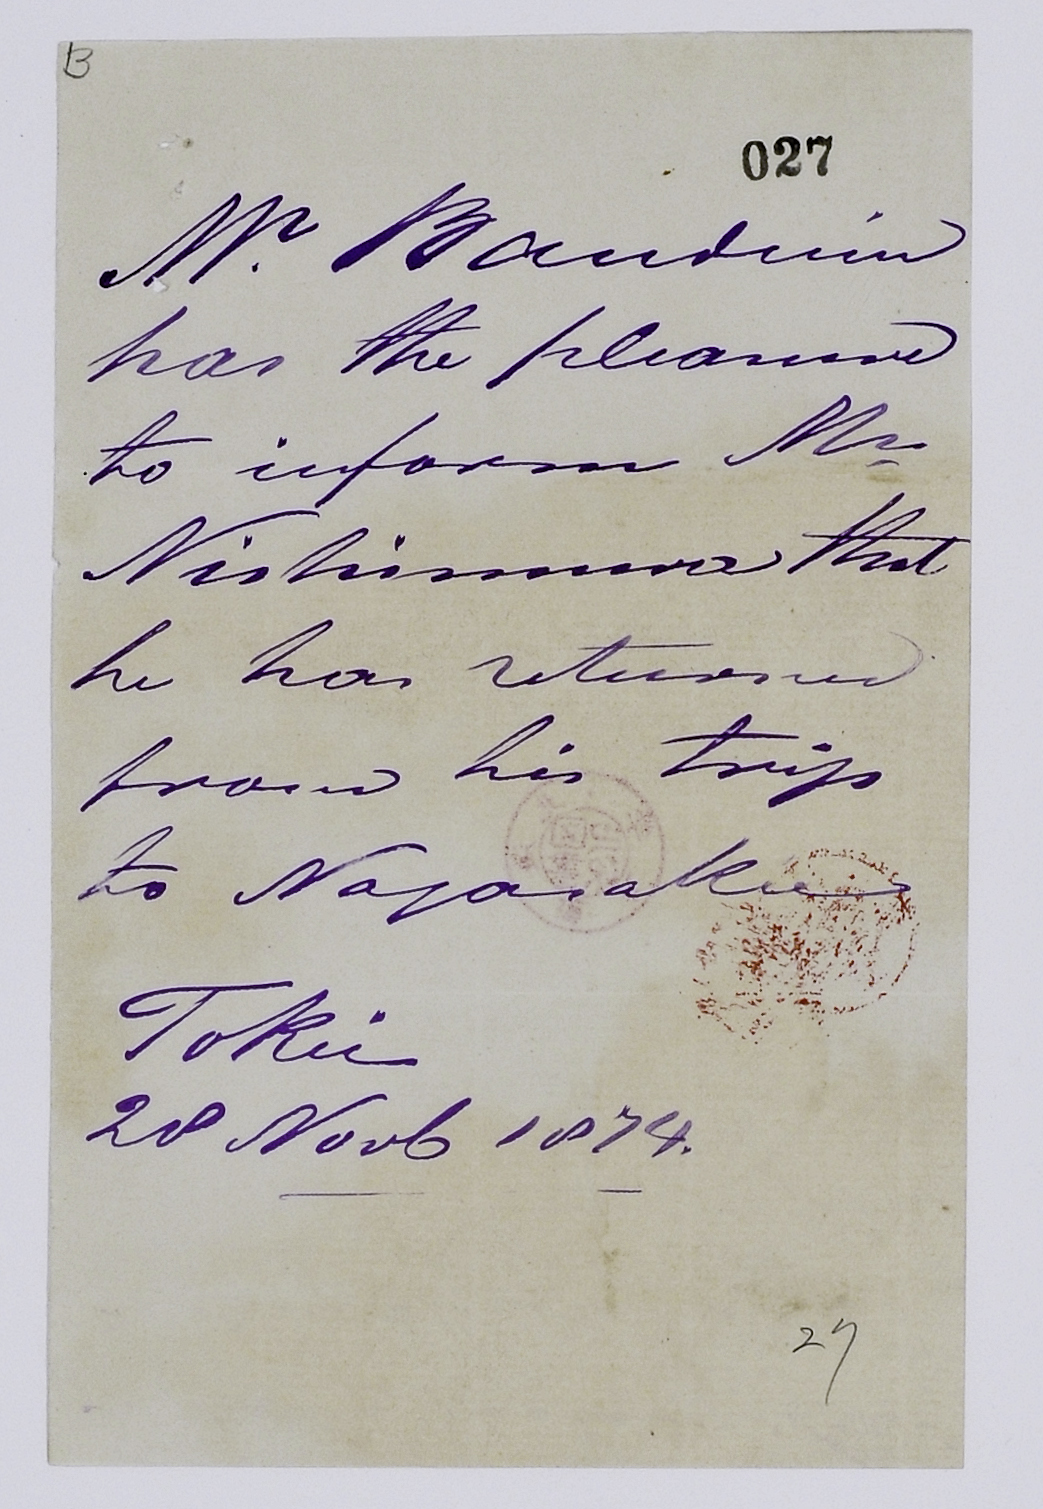 B
027
Mr. Bauduin
has the pleasure
to inform Mr
Nishimura that
he has returned
from his trip
to Nagasaki
Tokii
28 Novb 1874.
27